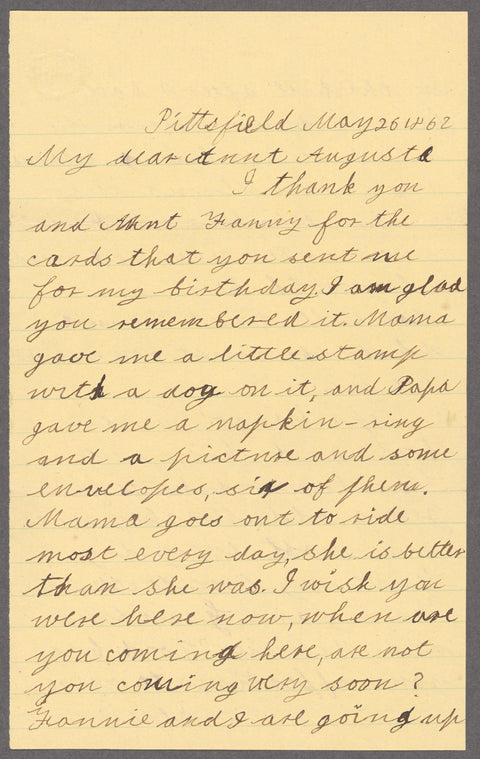 Pittsfield May 26 1862
My dear Aunt Augusta
I thank you
and Aunt Fanny for the
cards that you sent me
for my birthday. I am glad
you remembered it. Mama
gave me a little stamp
with a dog on it, and Papa
gave me a napkin-ring
and a picture and some
envelopes, six of them.
Mama goes out to ride
most every day, she is better
than she was. I wish you
were here now, when are
you coming here, are not
you coming very soon?
Fannie and I are going up